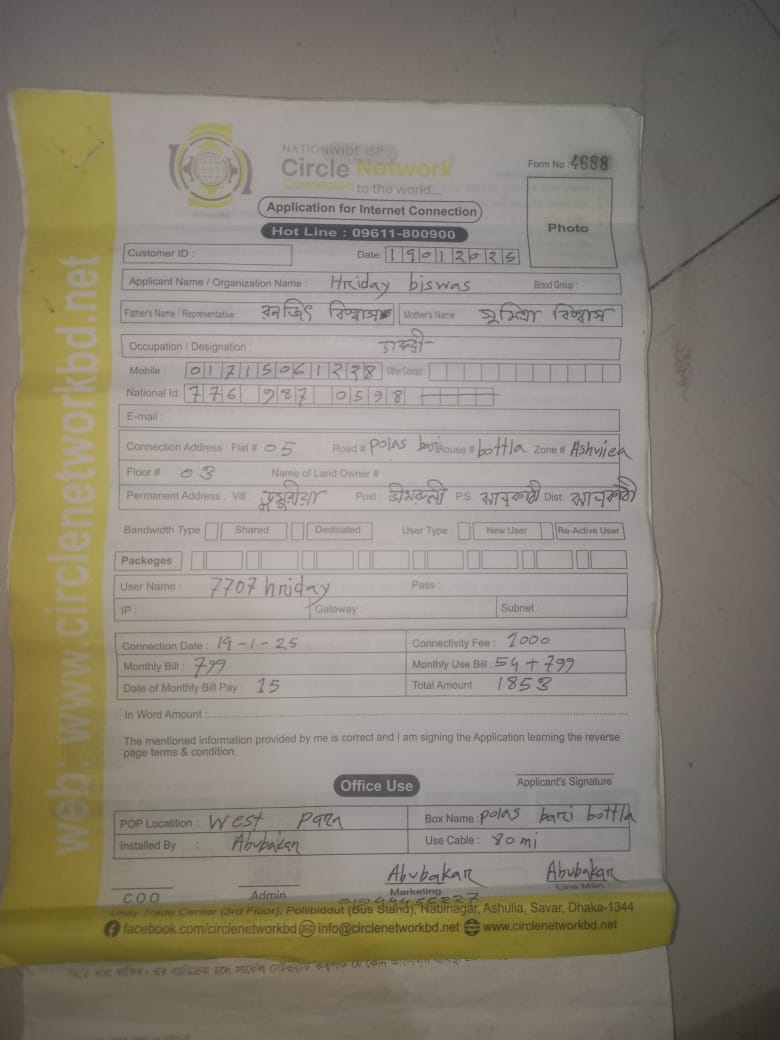 NATIONWIDE ISP
Circle Network
Connected to the world...
Form No : 4688
Application for Internet Connection
Hot Line : 09611-800900
Photo
Customer ID :
Date: 19012025
Applicant Name / Organization Name : Hriday biswas Blood Group :
Father's Name / Representative : রনজিৎ বিশ্বাস Mother's Name : সুমিত্রা বিশ্বাস
Occupation / Designation : চাকরী
Mobile : 01715061228 Other Contact
National Id: 776 987 0598
E-mail :
Connection Address : Flat # 05 Road # polas bari House # bottla Zone # Ashuliea
Floor # 03 Name of Land Owner #
Permanent Address : Vill ডুমুরীয়া Post : ভীমরুলী P.S. ঝালকাঠী Dist: ঝালকাঠী
Bandwidth Type Shared Dedicated User Type : New User Re-Active User
Packeges
User Name : 7707hriday Pass :
IP : Gateway : Subnet :
Connection Date : 19-1-25 Connectivity Fee : 1000
Monthly Bill : 799 Monthly Use Bill : 54+799
Date of Monthly Bill Pay : 15 Total Amount : 1853
In Word Amount :
The mentioned information provided by me is correct and I am signing the Application learning the reverse
page terms & condition.
Applicant's Signature
Office Use
POP Locatition : West Para Box Name : polas bari bottla
Installed By : Abubakar Use Cable : 80 mi
Abubakar Abubakar
C.O.O Admin Marketing Line Man
Unity Trade Center (3rd Floor), Pollibiddut (Bus Stand), Nabinagar, Ashulia, Savar, Dhaka-1344
facebook.com/circlenetworkbd info@circlenetworkbd.net www.circlenetworkbd.net
web: www.circlenetworkbd.net